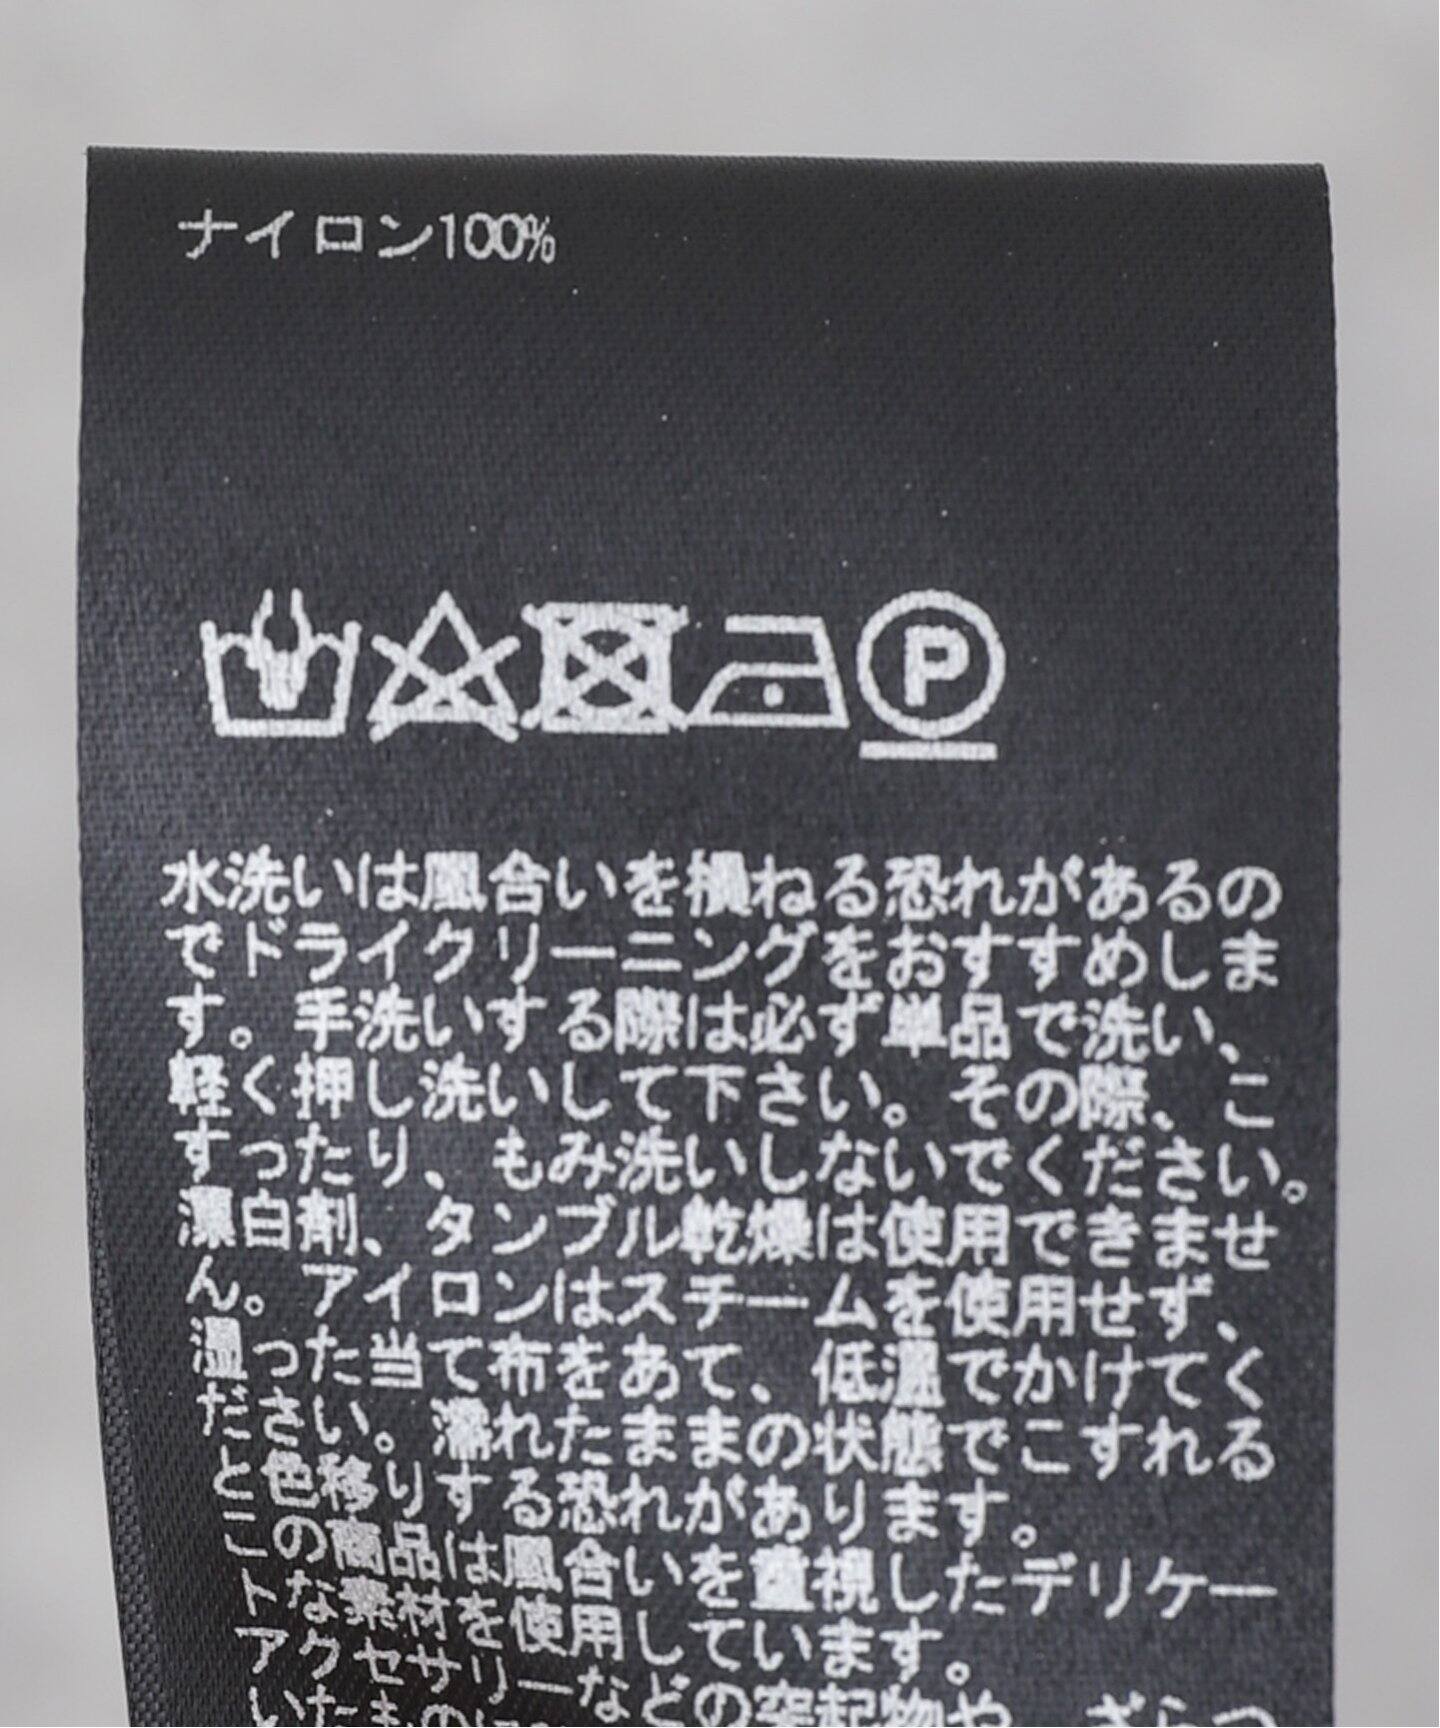 ナイロン100%
P
水洗いは風合いを損ねる恐れがあるの
でドライクリーニングをおすすめしま
す。手洗いする際は必ず単品で洗い、
軽く押し洗いして下さい。その際、こ
すったり、もみ洗いしないでください。
漂白剤、タンブル乾燥は使用できませ
ん。アイロンはスチームを使用せず、
湿った当て布をあて、低温でかけてく
ださい。濡れたままの状態でこすれる
と色移りする恐れがあります。
この商品は風合いを重視したデリケー
トな素材を使用しています。
アクセサリーなどの突起物や、ざらつ
いたものに